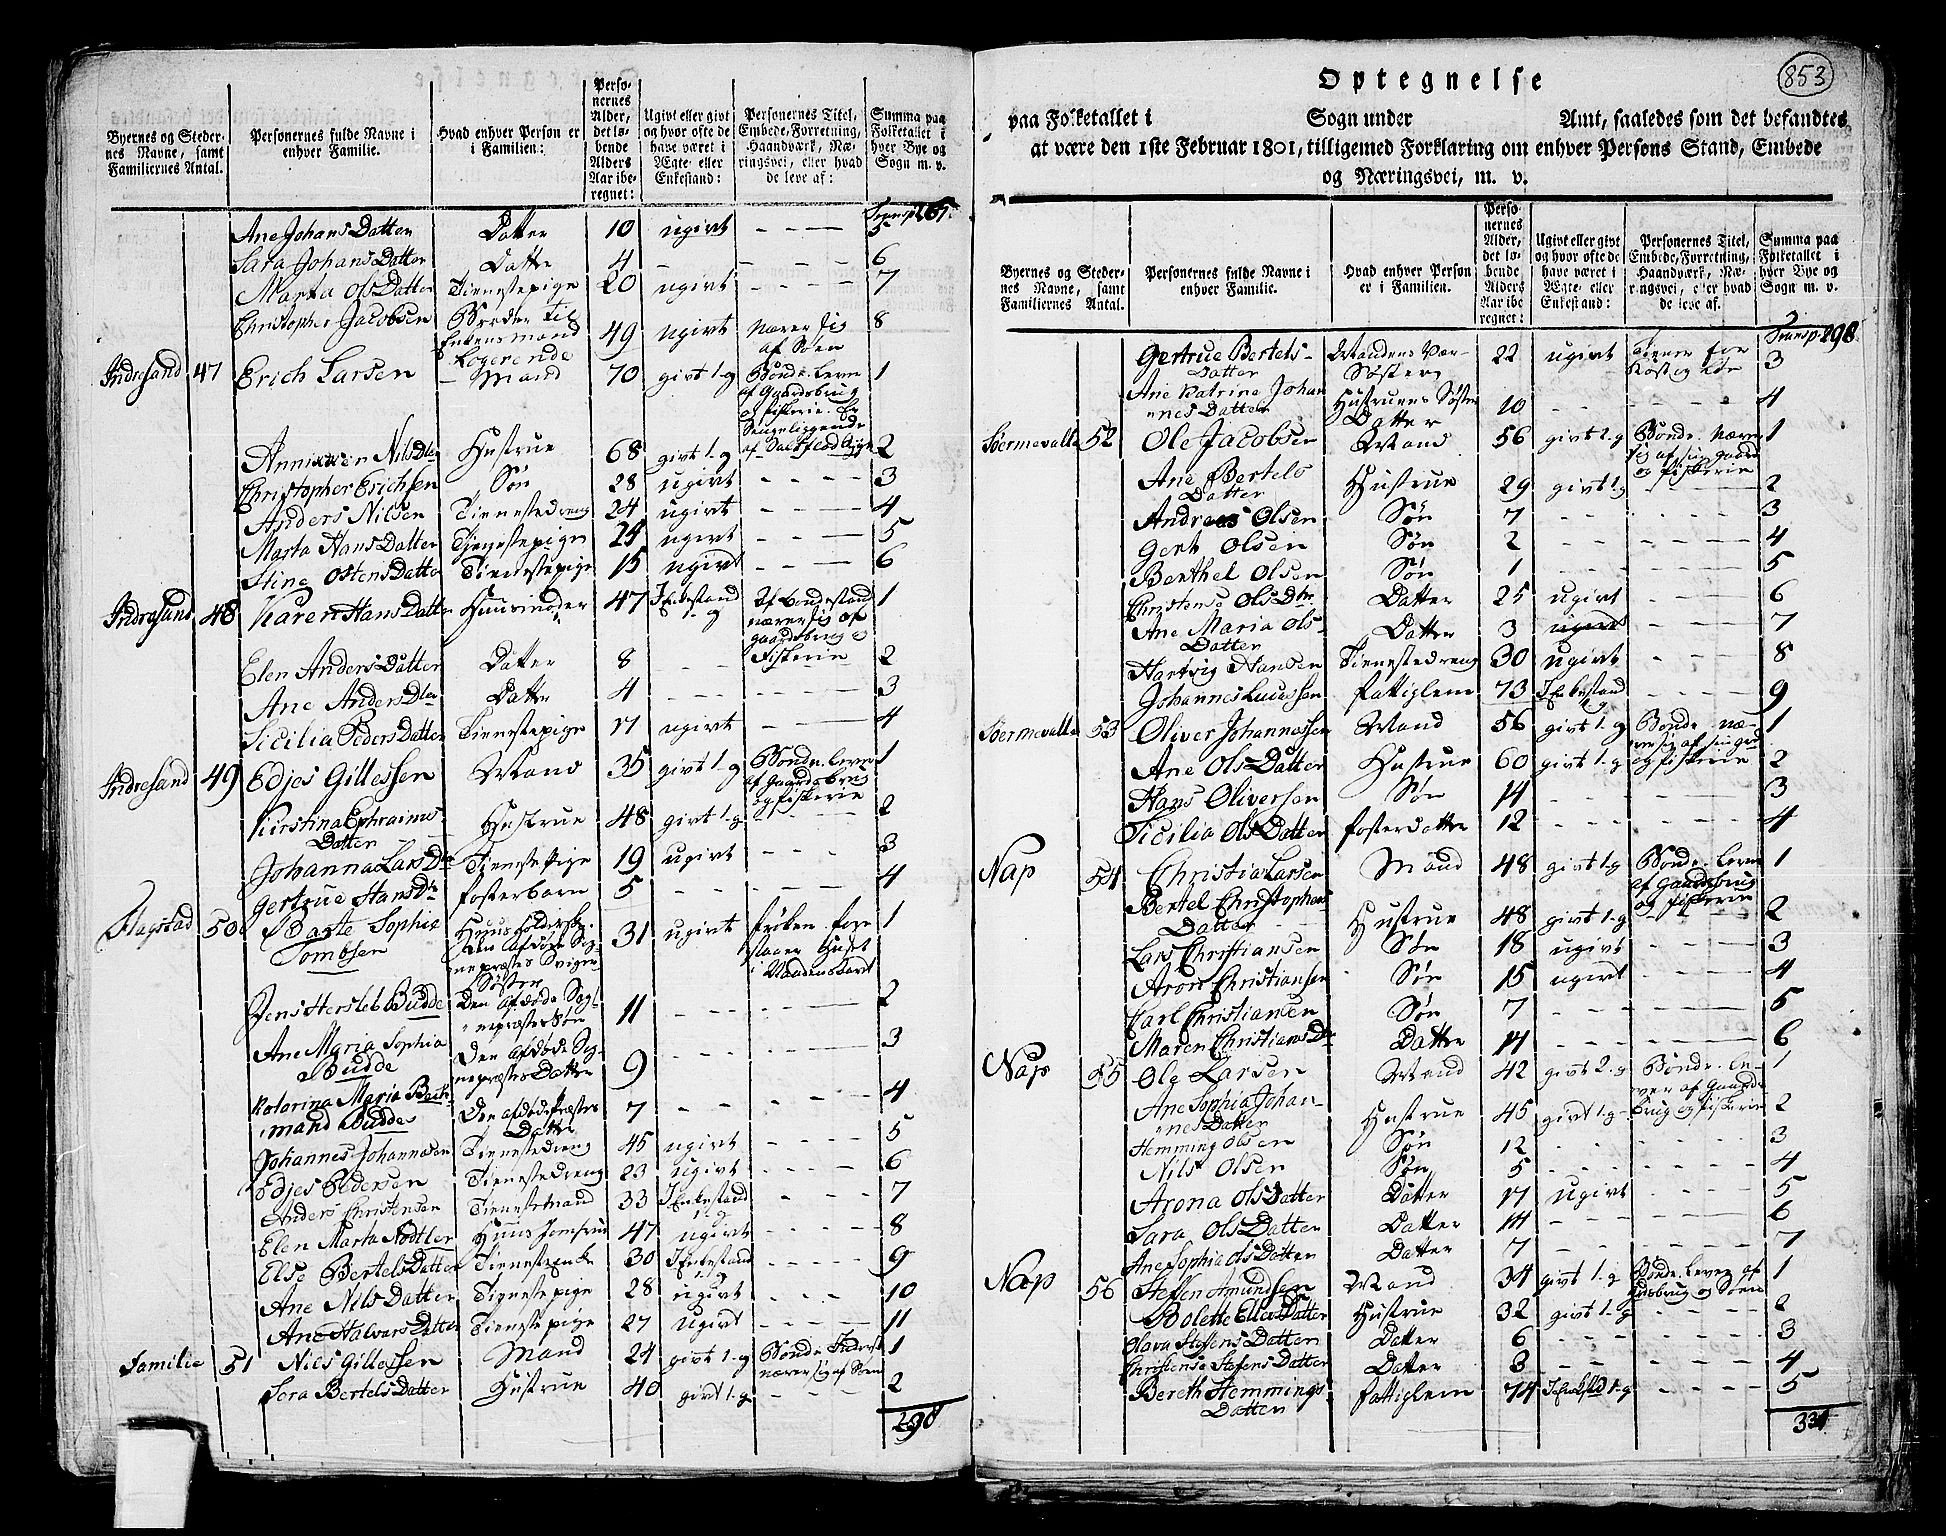 Byernes og Steder-
nes Navne, samt
Familiernes Antal.
Personernes fulde Navne i
enhver Familie.
Hvad enhver Person er
i Familien:
Perso-
nernes
Alder,
det lø-
bende
Alders
Aar ibe-
regnet:
Ugivt eller givt
og hvor ofte de
have været i
Ægte- eller
Enkestand:
Personernes Titel,
Embede, Forretning,
Haandværk, Næ-
ringsvei, eller hvad
de leve af:
Summa paa
Folketallet i
hver Bye og
Sogn m. v.
Transp 265.
Ane Johans Datter Datter 10 ugivt - - - 5
Sara Johans Datter Datter 4 - - - - 6
Marta Ols Datter Tienestepige 20 ugivt - - - 7
Christopher Jacobsen Broder til
Enkensmand
Logerende 49 ugivt Nærer sig
af Søen 8
Indresand 47 Erich Larsen Mand 70 givt 1.g Bonde. Lever
af Gaardsbrug
og fiskerie. Er
Sengeliggende 1
Nils Dtr Hustrue 68 givt 1.g 2
Christopher Erichsen Søn 28 ugivt - - - 3
Anders Nilsen Tienestedreng 24 ugivt - - - 4
Marta Hans Datter Tjenestepige 24 ugivt - - - 5
Stine Ostens Datter Tienestepige 15 ugivt - - - 6
Indresand 48 Karen Hans Datter Huusmoder 47 I Enkestand
1.g Af bondestand
nærer sig af
gaardsbrug og
Fiskerie 1
Elen Anders Datter Datter 8 - - 2
Ane Anders Dtr Datter 4 - - - 3
Sicilia Peders Datter Tienestepige 17 ugivt - - - 4
Indresand 49 Edjes Gillessen Mand 35 givt 1.g Bonde. Lever
af Gaardsbrug
og fiskerie 1
Kirstina Ephraims
Datter Hustrue 48 givt 1.g - - - 2
Johanna Lars Dtr Tienestepige 19 ugivt - - - 3
Gertrue Hans Dtr fosterbarn 5 - - - 4
Flagstad 50 Barte Sophia
Tombsen Huusholderske.
Den Afdøde Sog-
nepræstes Sviger-
Søster 31 ugivt frøken fore
staaer Huset
1
Jens Hersleb Budde Den Afdøde Sog-
nepræstes Søn 11 - - - 2
Ane Maria Sophia
Budde Den Afdøde Sog-
nepræstes Datter 9 - - - 3
Katarina Maria Bach-
mand Budde Den afdøde Præstes
Datter 7 - - - 4
Johannes Johannesen Tienestedreng 45 ugivt - - - 5
Edjes Pedersen Tienestedreng 23 ugivt - - - 6
Anders Christensen Tienestmand 33 I Enkestand
1.g - - - 7
Elen Marta Nodtler Huus Jomfrue 47 ugivt - - - 8
Else Bertels Datter Tienesteenke 30 I Enkestand
1.g - - - 9
Ane Nils Datter Tienestepige 28 ugivt - - - 10
Ane Halvors Datter Tienestepige 27 ugivt - - - 11
Familie 51 Nils Gillessen Mand 24 givt 1.g Bonde
nærer sig af Søen 1
Sera Bertels Datter Hustrue 40 givt 1.g - - - 2
298
853
Optegnelse
paa Folketallet i Sogn under Amt, saaledes som det befandtes
at være den 1ste Februar 1801, tilligemed Forklaring om enhver Persons Stand, Embede
og Næringsvei, m. v.
Byernes og Steder-
nes Navne, samt
Familiernes Antal.
Personernes fulde Navne i
enhver Familie.
Hvad enhver Person
er i Familien.
Perso-
nernes
Alder,
det lø-
bende
Alders
Aar ibe
regnet:
Ugivt eller givt
og hvor ofte de
have været i
Ægte- eller
Enkestand:
Personernes Titel,
Embede, Forretning,
Haandværk, Næ-
ringsvei, eller hvad
de leve af.
Summa paa
Folketallet i
hver Bye og
Sogn m. v.
Transp 298
Gertrue Bertels-
Datter Mandens Vær-
Søster 22 ugivt Tiener for
Kost og 3
Ane Katrine Johan
nes Datter Hustruens Søster
Datter 10 - - - 4
Søermevalle 52 Ole Jacobsen Mand 56 givt 2.g Bonde. Nærer
sig af sin gaard
og fiskerie 1
Ane Bertels
Datter Hustrue 29 givt 1.g - - - 2
Andreas Olsen Søn 7 - - - 3
Gert Olsen Søn 2 - - - 4
Berthel Olsen Søn 1 - - - 5
Christense Ols Dtr. Datter 25 ugivt - - - 6
Ane Maria Ols-
Datter Datter 3 ugivt - - - 7
Hartvig Hansen Tienestedreng 30 ugivt - - - 8
Johannes Lucassen fattiglem 73 I Enkestand
1.g - - - 9
Søermevalle 53 Oliver Johannessen Mand 56 givt 1.g Bonde. næ-
rer sig af sin gard
og fiskerie 1
Ane Ols Datter Hustrue 60 givt 1.g 2
Hans Oliversen Søn 14 - - - 3
Sicilia Ols Datter fosterdatter 12 - - - 4
Nap 54 Christia Larsen Mand 48 givt 1.g Bonde. Lever
af Gaardsbrug
og fiskerie 1
Bertel Christophers
Datter Hustrue 48 givt 1.g 2
Lars Christiansen Søn 18 ugivt - - - 3
Aron Christiansen Søn 15 ugivt - - - 4
Carl Christiansen Søn 7 - - - 5
Maren Christians Dtr Datter 14 - - - 6
Nap 55 Ole Larsen Mand 42 givt 2.g Bonde. Le-
ver af Gaards-
brug og fiskerie 1
Ane Sophia Johan-
nes Datter Hustrue 45 givt 1.g 2
Hemming Olsen Søn 12 - - - 3
Nils Olsen Søn 5 - - - 4
Arona Ols Datter Datter 17 ugivt - - - 5
Sara Ols Datter Datter 14 - - - 6
Ane Sophia Ols Datter Datter 7 - - - 7
Nap 56 Steffen Amundsen Mand 34 givt 1.g Bonde. Lever af
Jordbrug og Søen 1
Bolette Ellers Datter Hustrue 32 givt 1.g - - - 2
Olava Steffens Datter Datter 6 - - - 3
Christense Stefens Datter Datter 3 - - - 4
Bereth Hemmings-
Datter fattiglem 74 I Enkestd 1.g - - - 5
331